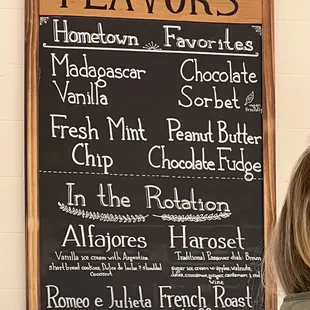 FLAVORS
Hometown Favorites
Madagascar
Vanilla
Chocolate
Sorbet
vegan
friendly
Fresh Mint
Chip
Peanut Butter
Chocolate Fudge
In the Rotation
Alfajores
Vanilla ice cream with Argentine
short bread cookies, Dulce de leche & shredded
Coconut
Haroset
Traditional Passover dish: Brown
sugar ice cream w/ apples, walnuts,
dates, ginger, cardamom &
Wine
Romeo e Julieta
French Roast